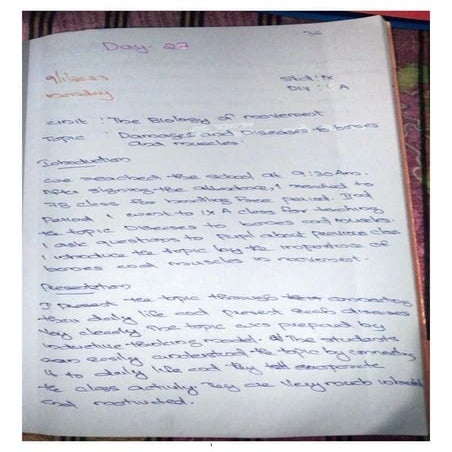 36
Day - 27
9/1/2023
Monday
std : IX
Div : A
Unit : The Biology of movement
Topic : Damages and Diseases to bones
and muscles.
Introduction
We reached the school at 9:30 Am.
After signing the attendance, I reached to
class for handling Free period. IInd
Period I went to IX A class for
the topic Diseases to bones and muscles.
I ask questions to about previous class
I introduce the topic by the importance of
bones and muscles in movement.
Presentation
I Present the topic through connecting
daily life and present each diseases
Very clearly. The topic was prepared by
inductive thinking model. The students
can easily understood the topic by connecting
it to daily life and they
the class activity. They are Very much
and motivated.